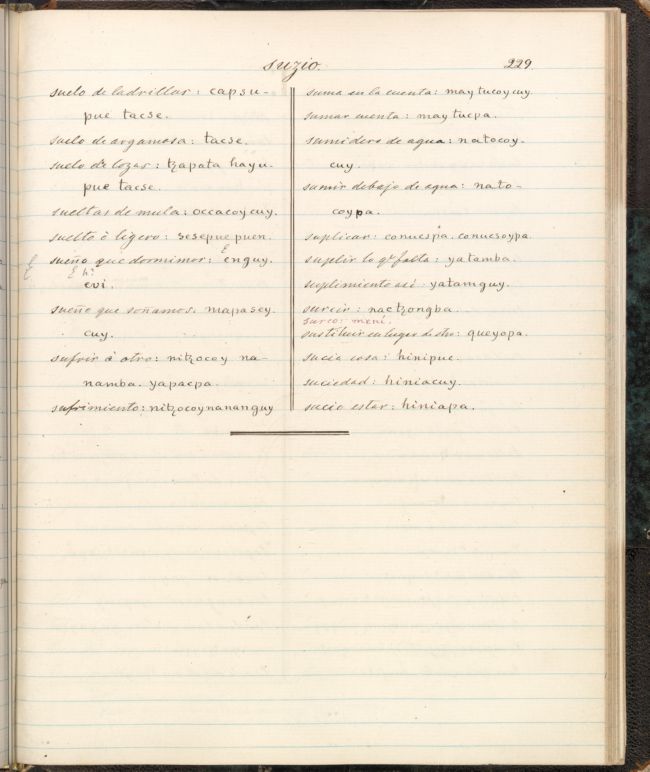 suzio.
229.
suelo de ladrillar: capsu-
pue tacse.
suelo de argamasa: tacse.
suelo de lozas: tzapata hayu.
pue tacse.
sueltas de mula: occacoycuy.
suelto ò ligero: sesepue puen.
sueño que dormimos: enguy.
evi.
sueño que soñamos: mapasey
cuy.
sufrir à otro: nitzocoy na-
namba. yapacpa.
sufrimiento: nitzocoynananguy
suma en la cuenta: maytucoycuy.
sumar cuenta: maytucpa.
sumidero de agua: natocoy-
cuy.
sumir debajo de agua: nato-
coypa.
suplicar: conuespa. conuesoypa.
suplir lo qe falta: yatamba.
suplimiento asi: yatamguy.
surcir: nactzongba.
surco: mení.
sustituir en lugar de otro: queyopa.
sucia cosa: hinipue.
suciedad: hiniacuy.
sucio estar: hiniapa.